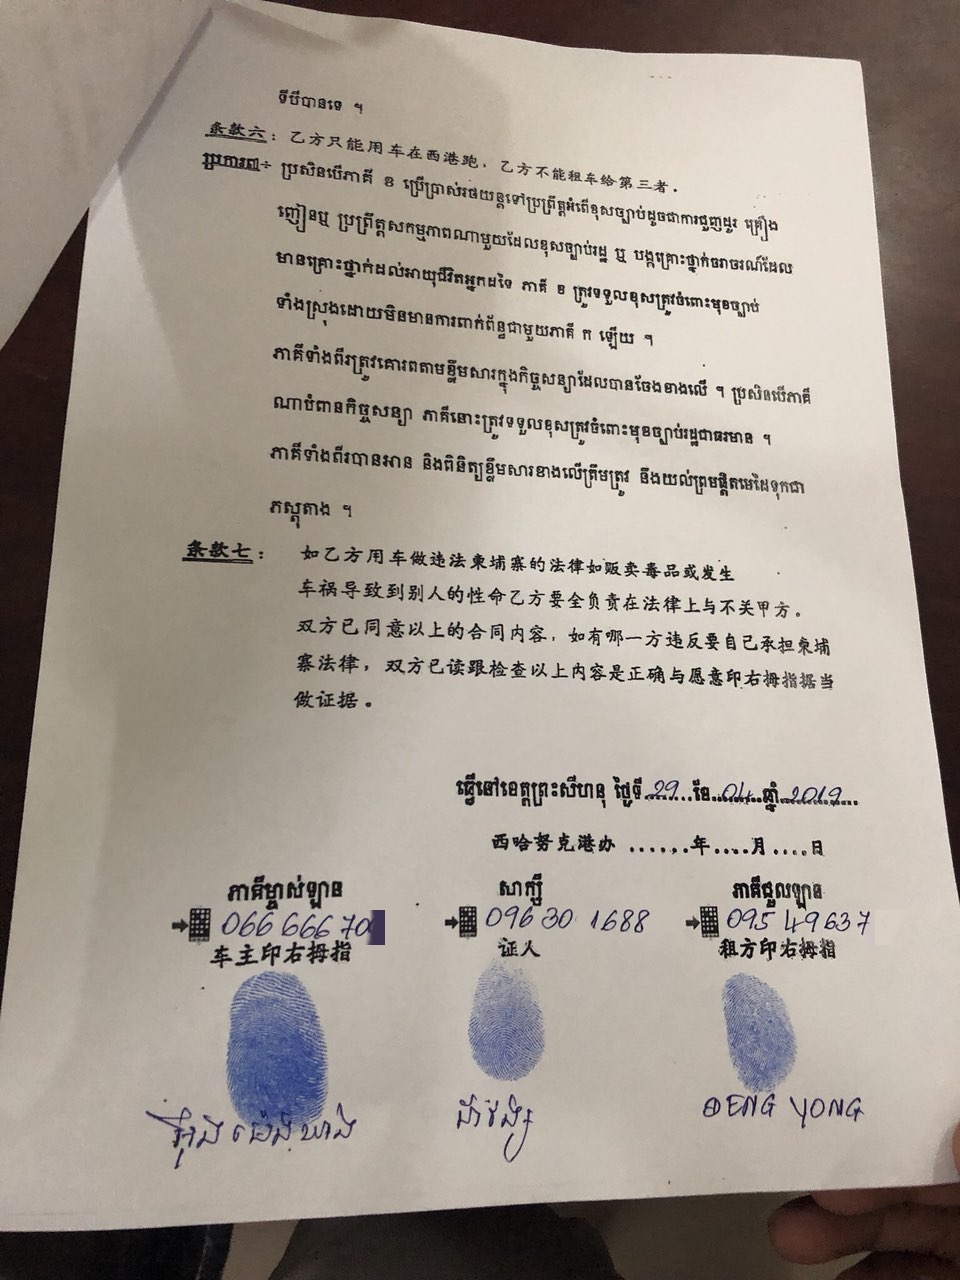 ទីបីបានទេ ។
条款六： 乙方只能用车在西港跑，乙方不能租车给第三者.
ប្រការ៧÷ ប្រសិនបើភាគី ខ ប្រើប្រាស់រថយន្តទៅប្រព្រឹត្តអំពើខុសច្បាប់ដូចជាការជួញដូរ គ្រឿង
ញៀនឬ ប្រព្រឹត្តសកម្មភាពណាមួយដែលខុសច្បាប់រដ្ឋ ឬ បង្កគ្រោះថ្នាក់ចរាចរណ៍ដែល
មានគ្រោះថ្នាក់ដល់អាយុជីវិតអ្នកដទៃ ភាគី ខ ត្រូវទទួលខុសត្រូវចំពោះមុខច្បាប់
ទាំងស្រុងដោយមិនមានការពាក់ព័ន្ធជាមួយភាគី ក ឡើយ ។
ភាគីទាំងពីរត្រូវគោរពតាមខ្លឹមសារក្នុងកិច្ចសន្យាដែលបានចែងខាងលើ ។ ប្រសិនបើភាគី
ណាបំពានកិច្ចសន្យា ភាគីនោះត្រូវទទួលខុសត្រូវចំពោះមុខច្បាប់រដ្ឋជាធរមាន ។
ភាគីទាំងពីរបានអាន និងពិនិត្យខ្លឹមសារខាងលើត្រឹមត្រូវ នឹងយល់ព្រមផ្តិតមេដៃទុកជា
ភស្តុតាង ។
条款七： 如乙方用车做违法柬埔寨的法律如贩卖毒品或发生
车祸导致到别人的性命乙方要全负责在法律上与不关甲方。
双方已同意以上的合同内容，如有哪一方违反要自己承担柬埔
寨法律，双方已读跟检查以上内容是正确与愿意印右拇指据当
做证据。
ធ្វើនៅខេត្តព្រះសីហនុ ថ្ងៃទី 29 ខែ 04 ឆ្នាំ 2019
西哈努克港办 ......年....月....日
ភាគីម្ចាស់ឡាន សាក្សី ភាគីជួលឡាន
066 666 70 096 30 1688 095 49637
车主印右拇指 证人 租方印右拇指
DENG YONG